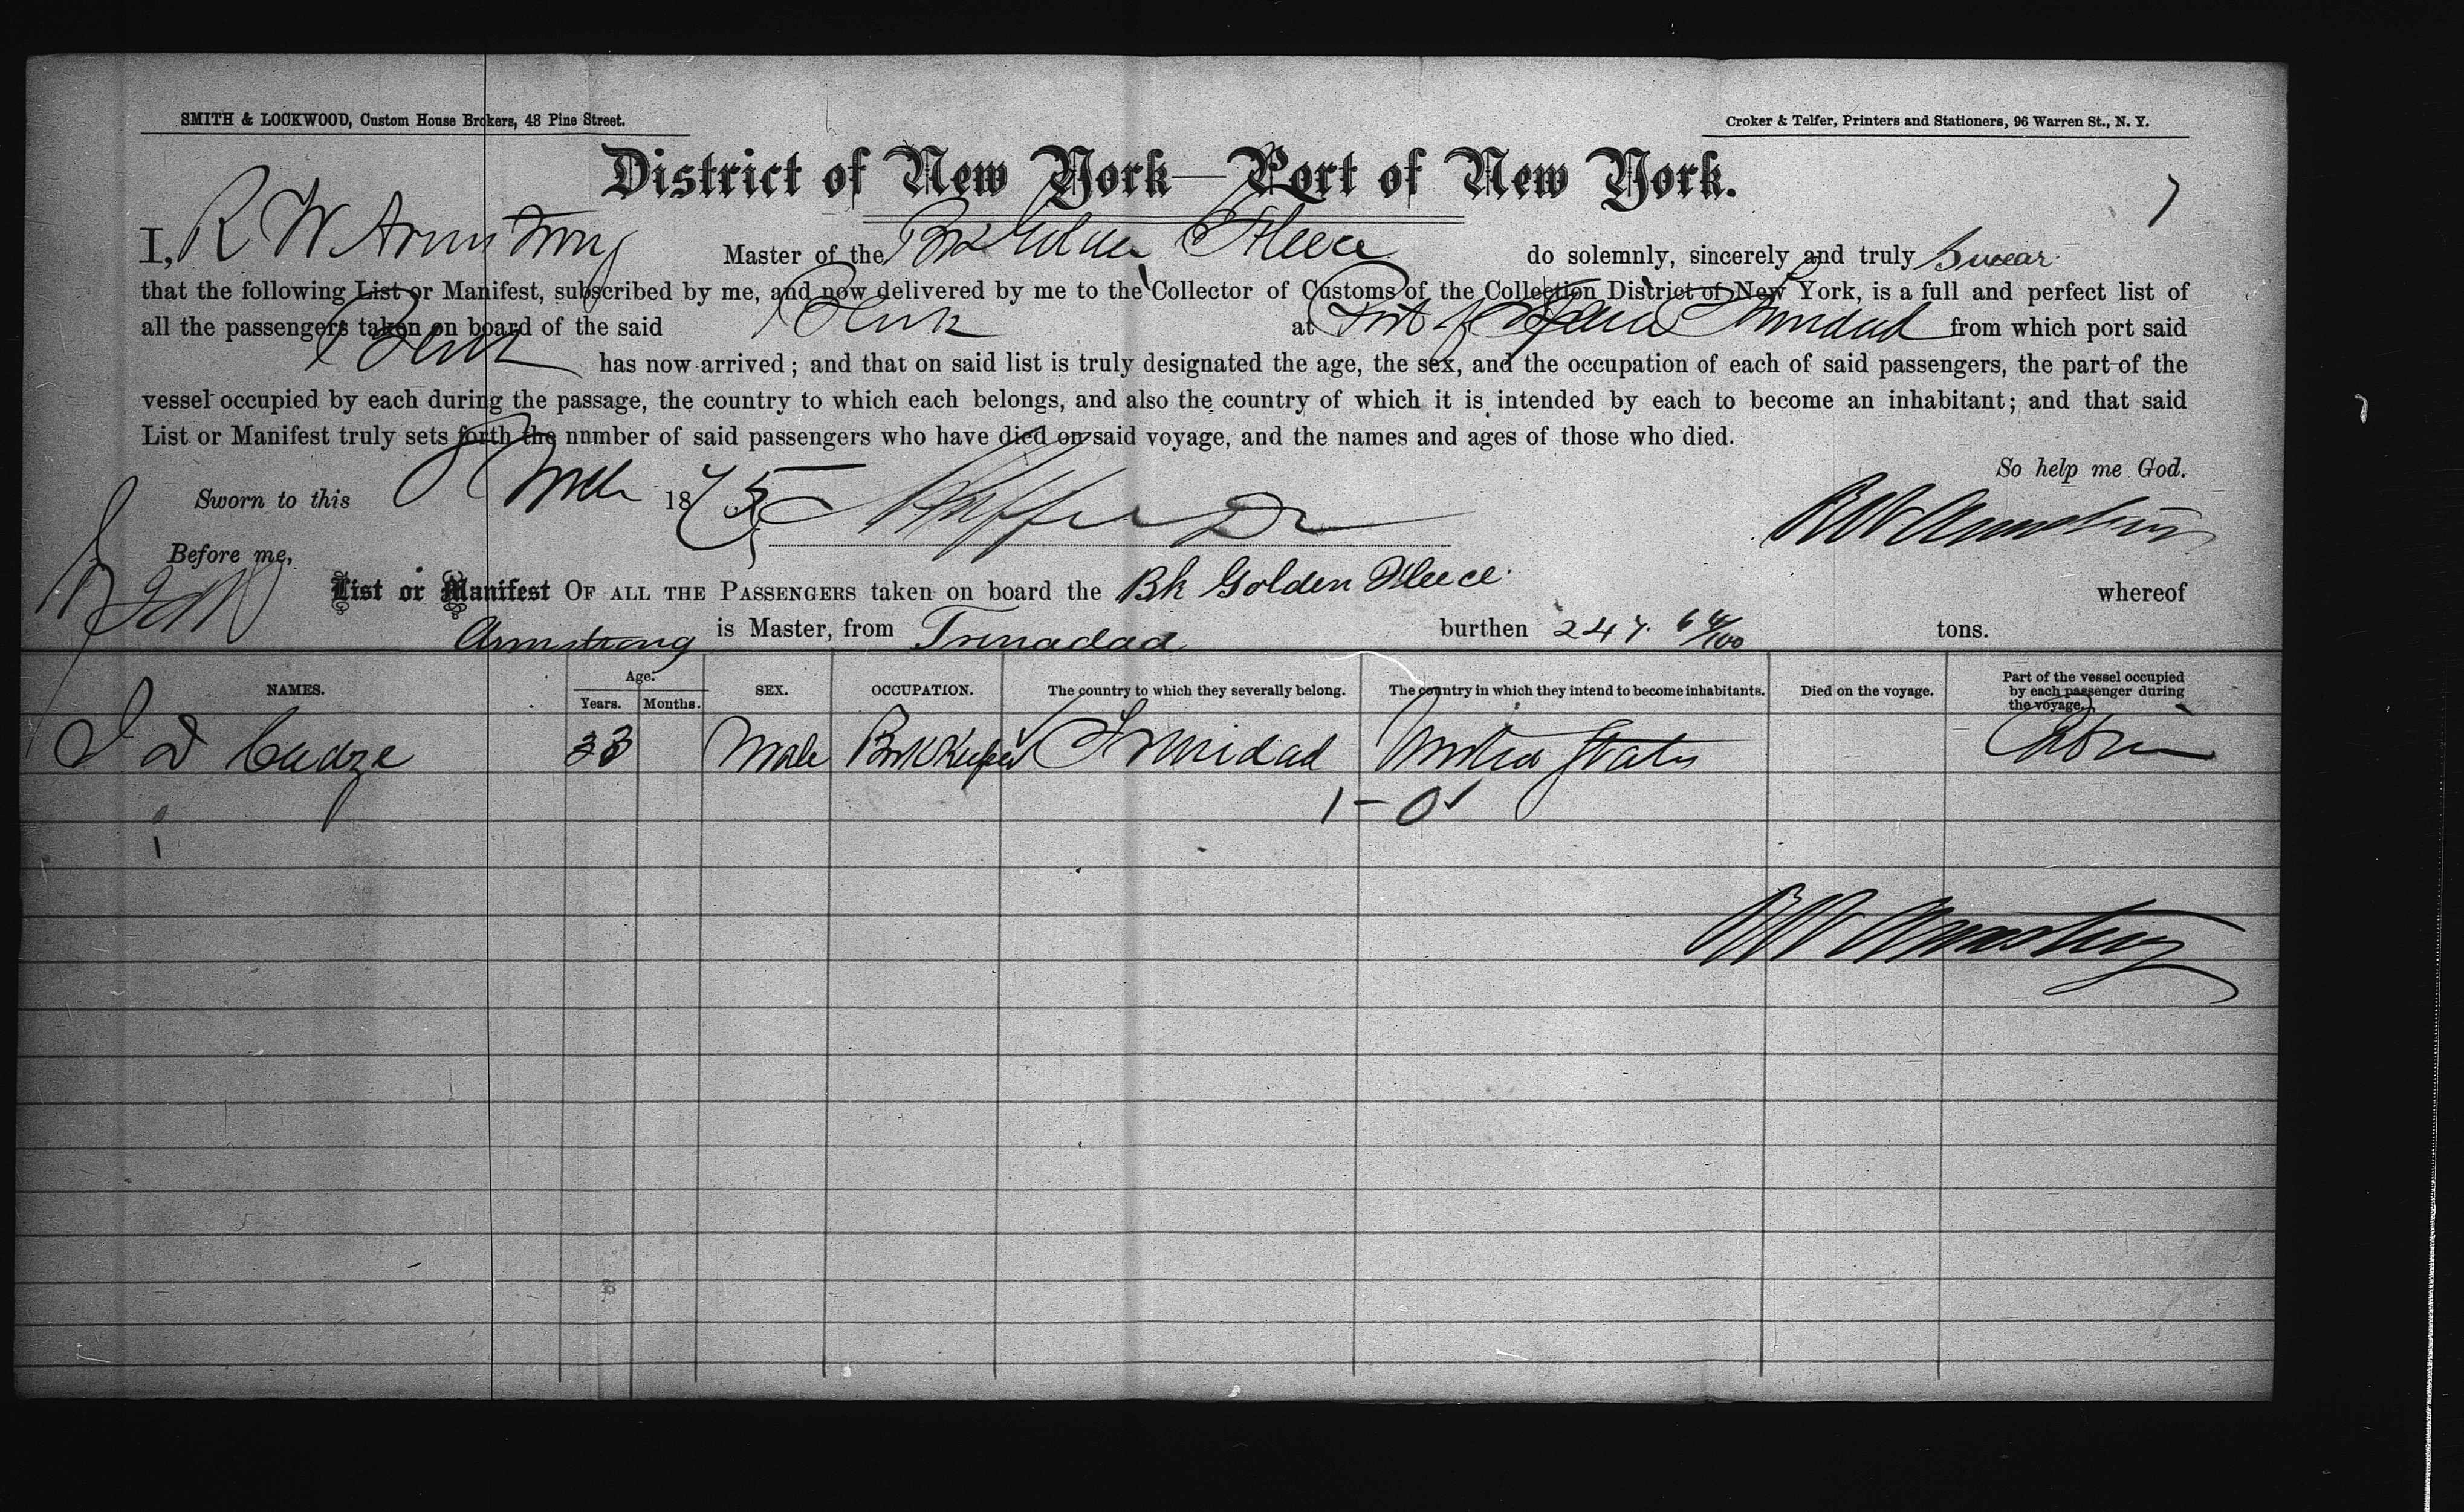 SMITH & LOCKWOOD, Custom House Brokers, 48 Pine Street.
Croker & Telfer, Printers and Stationers, 96 Warren St., N. Y.
District of New York—Port of New York.
I, R W Armstrong Master of the Brk Golden Fleece do solemnly, sincerely and truly Swear
that the following List or Manifest, subscribed by me, and now delivered by me to the Collector of Customs of the Collection District of New York, is a full and perfect list of
all the passengers taken on board of the said at Port of Spain Trinidad from which port said
has now arrived; and that on said list is truly designated the age, the sex, and the occupation of each of said passengers, the part of the
vessel occupied by each during the passage, the country to which each belongs, and also the country of which it is intended by each to become an inhabitant; and that said
List or Manifest truly sets forth the number of said passengers who have died on said voyage, and the names and ages of those who died.
So help me God.
Sworn to this 1875
R W Armstrong
Before me,
List or Manifest OF ALL THE PASSENGERS taken on board the Bk Golden Fleece whereof
Armstrong is Master, from Trinadad burthen 247 64/100 tons.
NAMES. Age. Years. Months. SEX. OCCUPATION. The country to which they severally belong. The country in which they intend to become inhabitants. Died on the voyage. Part of the vessel occupied by each passenger during the voyage.
33 Male BookKeeper Trinidad United States Cabin
1-0
R W Armstrong